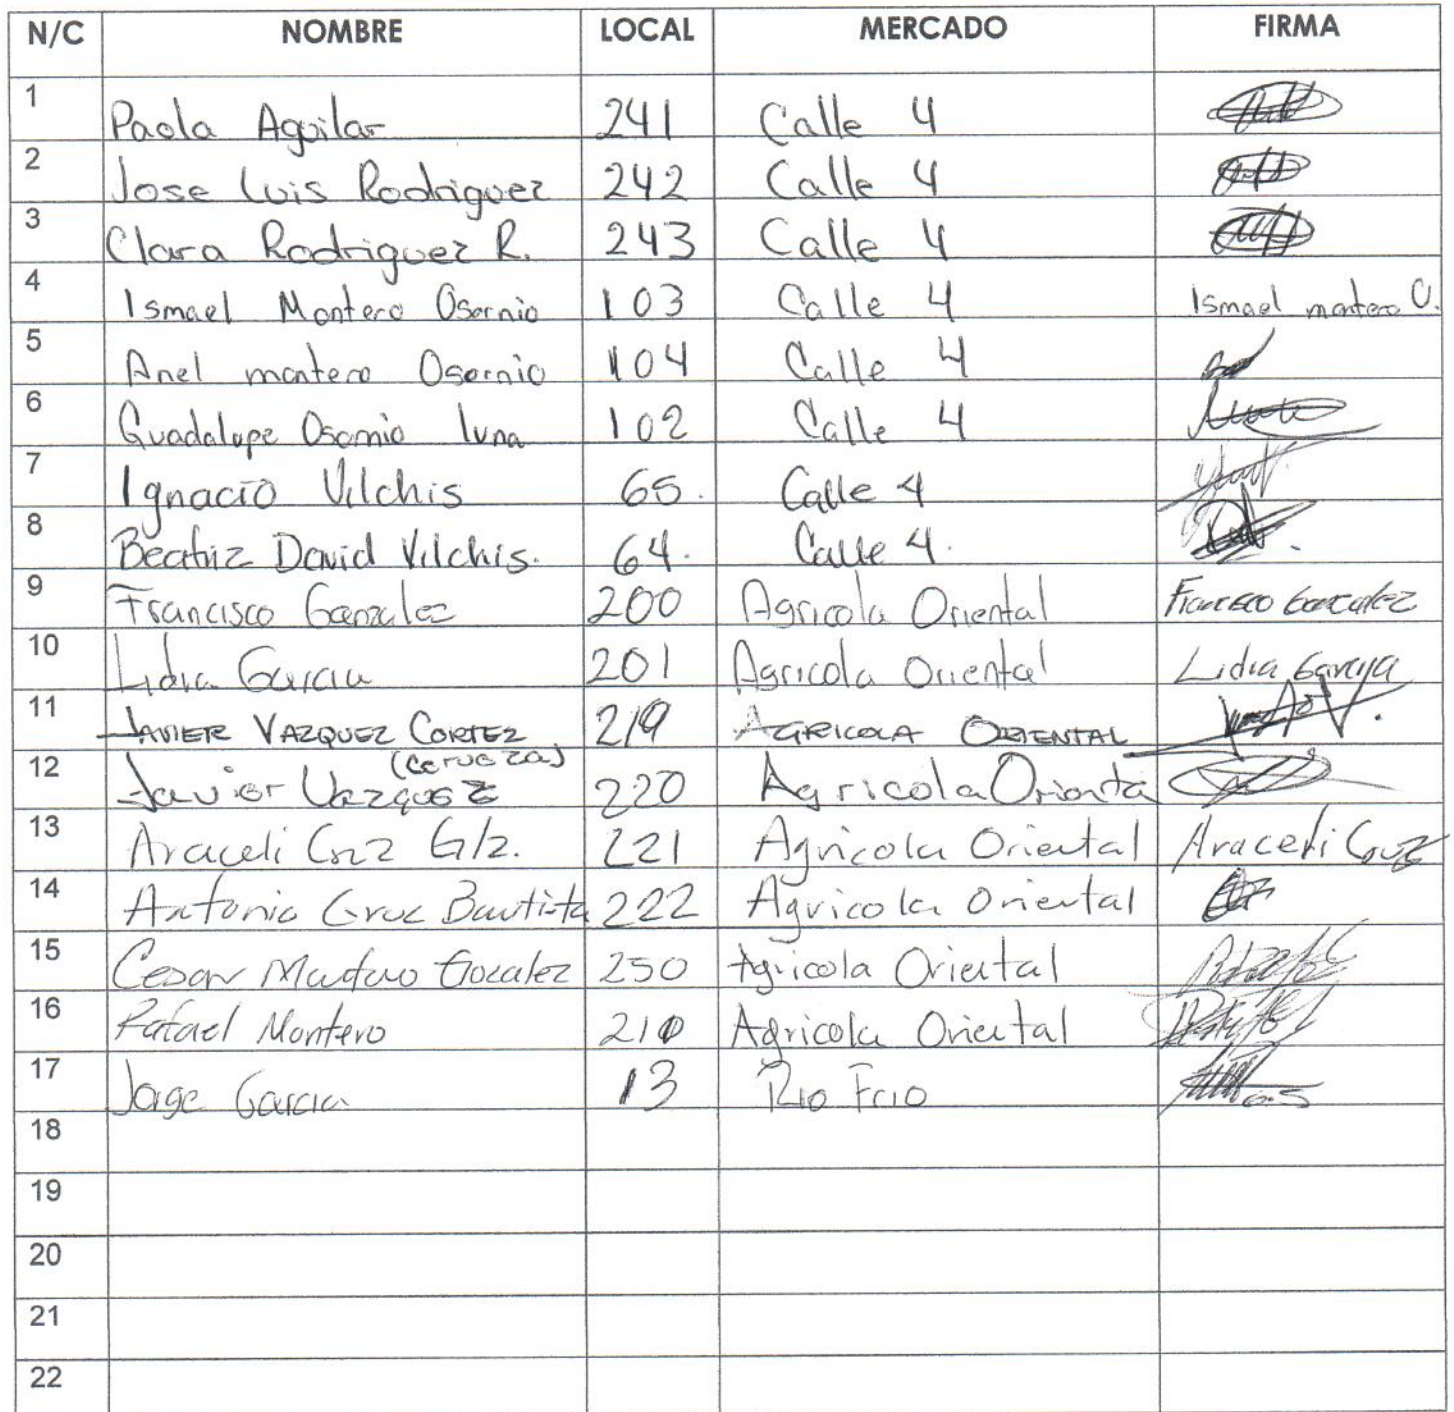 N/C NOMBRE LOCAL MERCADO FIRMA
1 Paola Aguilar 241 Calle 4
2 Jose Luis Rodriguez 242 Calle 4
3 Clara Rodriguez R. 243 Calle 4
4 Ismael Montero Osornio 103 Calle 4 Ismael montero O.
5 Anel montero Osornio 104 Calle 4
6 Guadalupe Osornio luna 102 Calle 4
7 Ignacio Vilchis 65. Calle 4
8 Beatriz David Vilchis. 64. Calle 4.
9 Francisco Gonzalez 200 Agricola Oriental Francisco Gonzalez
10 Lidia Garcia 201 Agricola Oriental Lidia Garcia
11 JAVIER VAZQUEZ CORTEZ 219 AGRICOLA ORIENTAL
(cerveza)
12 Javier Vazquez 220 Agricola Orienta
13 Araceli Cruz G/z. 221 Agricola Oriental Araceli Cruz
14 Antonio Cruz Bautista 222 Agricola Oriental
15 Cesar 250 Agricola Oriental
16 Rafael Montero 210 Agricola Oriental
17 Jorge Garcia 13 Rio Frio
18
19
20
21
22